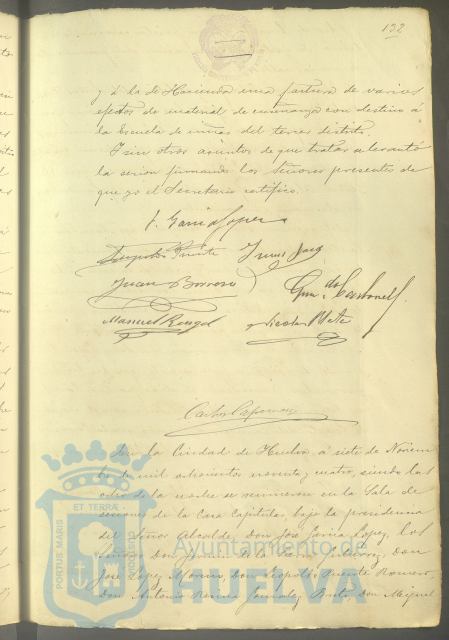 132
y á la de Hacienda una factura de varios
efectos de material de enseñanza con destino á
la Escuela de niñas del tercer distrito.
Y sin otros asuntos de que tratar se levantó
la sesion firmando los Señores presentes de
que yo el Secretario certifico.
J. Garcia Lopez
Puente
Juan Borrero
Gm.do Carbonell
Manuel Rengel
Nicolas
Carlos
En la Ciudad de Huelva, á siete de Noviem
bre de mil ochocientos noventa y cuatro, siendo las
ocho de la noche se reunieron en la Sala de
sesiones de la Casa Capitular, bajo la presidencia
del Señor Alcalde, Don José Garcia Lopez, los
Señores Don Juan Don
José Lopez Don Leopoldo Puente Romero,
Don Antonio Gonzalez, Don Miguel
Ayuntamiento de
HUELVA
PORTUS MARIS
ET TERRÆ
CUSTODIO